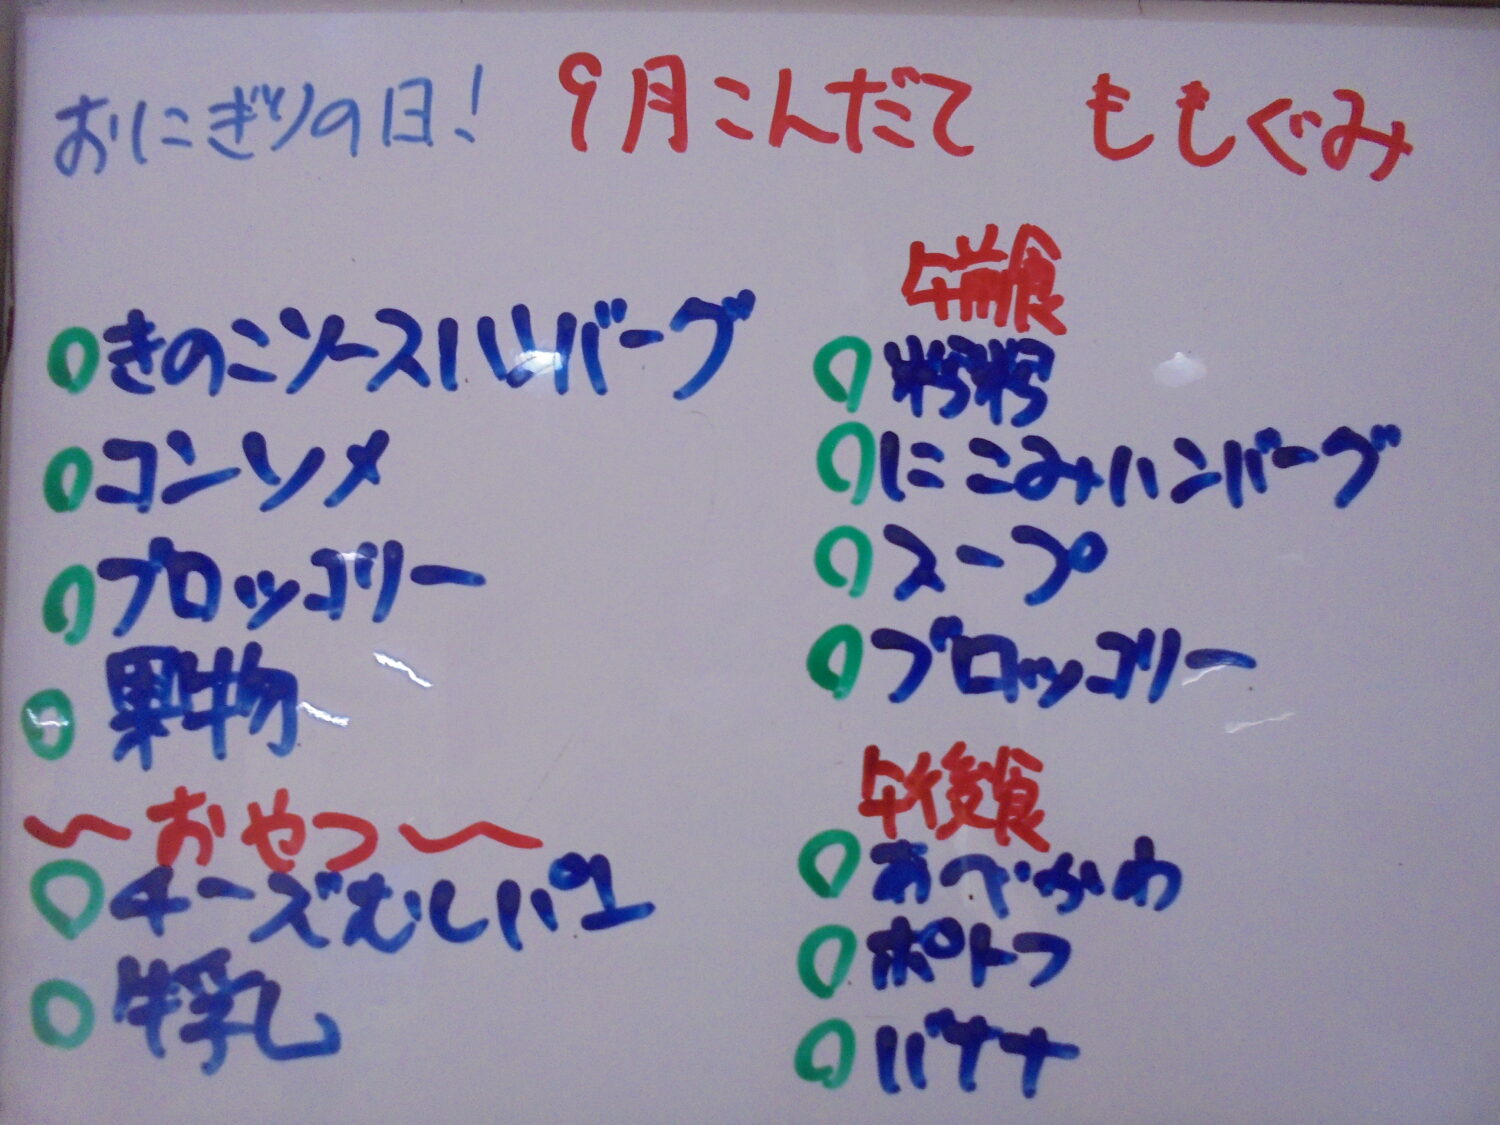 おにぎりの日!
9月こんだて
ももぐみ
きのこソースハンバーグ
コンソメ
ブロッコリー
果物
〜おやつ〜
チーズむしパン
牛乳
午前食
にこみハンバーグ
スープ
ブロッコリー
午後食
あべかわ
ポトフ
バナナ